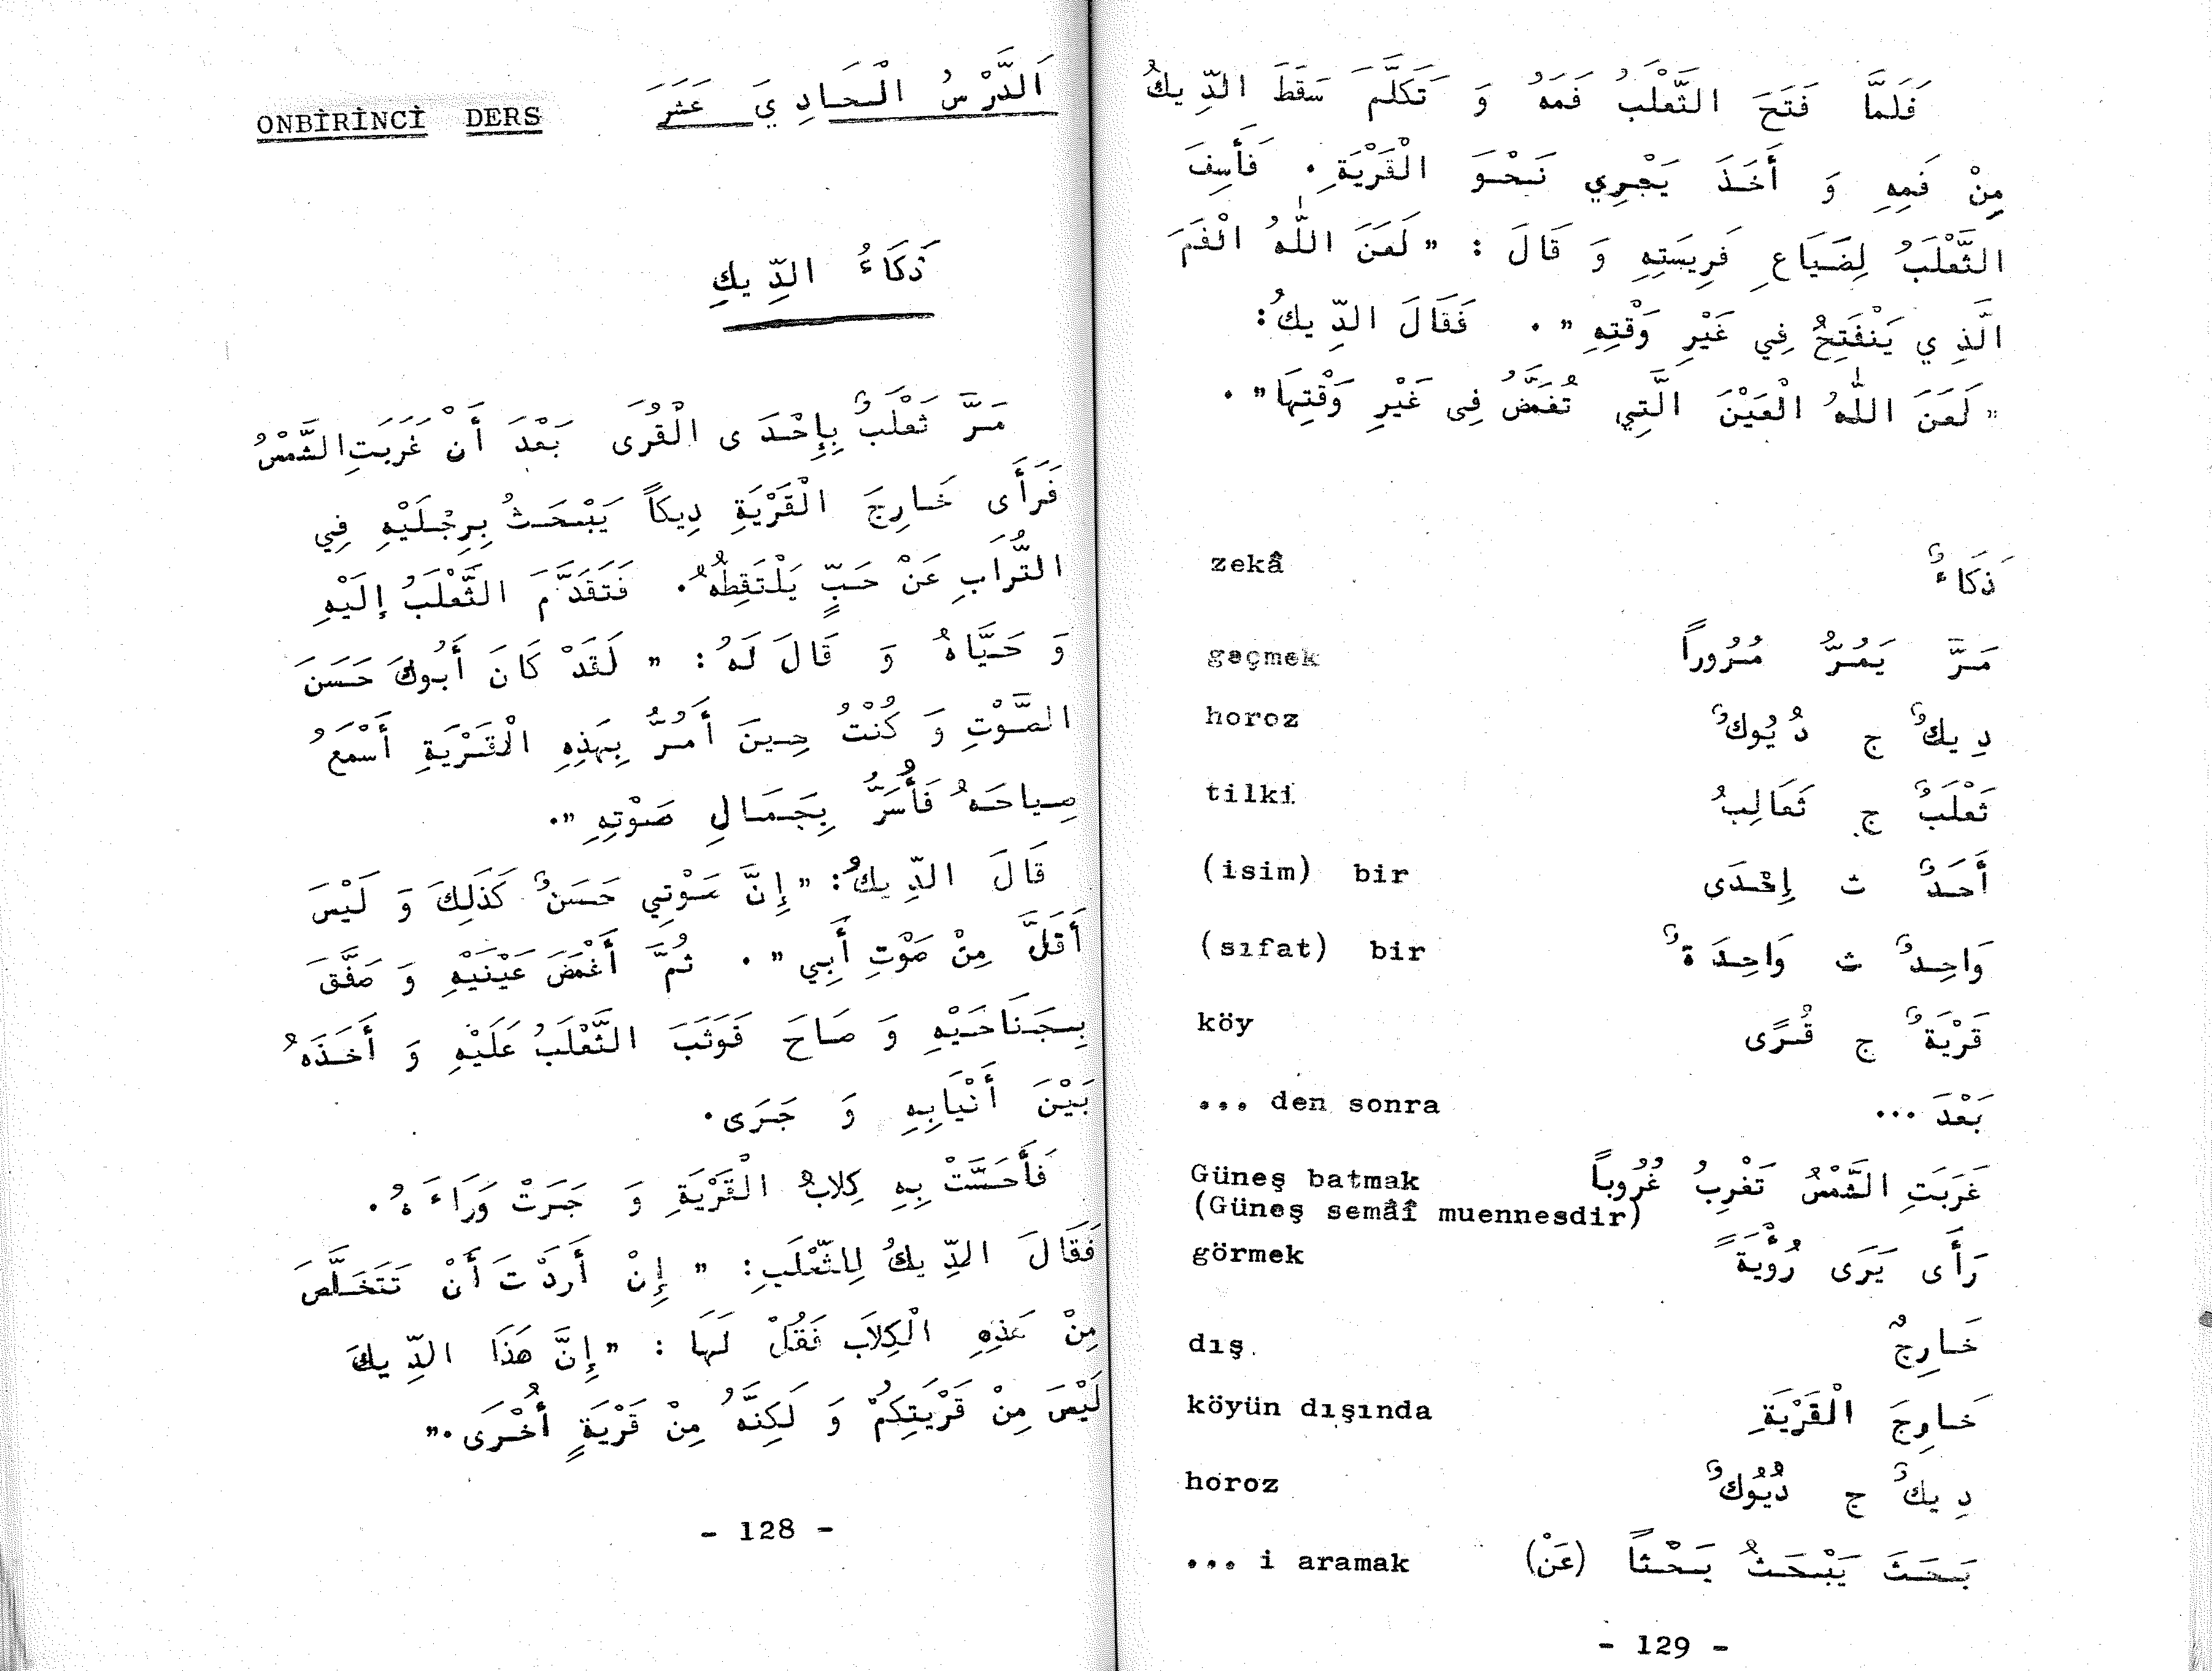 ONBİRİNCİ DERS اَلدَّرْسُ الْحَادِيَ عَشَرَ
ذَكَاءُ الدِّيكِ
مَرَّ ثَعْلَبٌ بِإِحْدَى الْقُرَى بَعْدَ أَنْ غَرَبَتِ الشَّمْسُ
فَرَأَى خَارِجَ الْقَرْيَةِ دِيكاً يَبْحَثُ بِرِجْلَيْهِ فِي
التُّرَابِ عَنْ حَبٍّ يَلْتَقِطُهُ. فَتَقَدَّمَ الثَّعْلَبُ إِلَيْهِ
وَ حَيَّاهُ وَ قَالَ لَهُ: " لَقَدْ كَانَ أَبُوكَ حَسَنَ
الصَّوْتِ وَ كُنْتُ حِينَ أَمُرُّ بِهَذِهِ الْقَرْيَةِ أَسْمَعُ
صِيَاحَهُ فَأُسَرُّ بِجَمَالِ صَوْتِهِ ".
قَالَ الدِّيكُ: " إِنَّ صَوْتِي حَسَنٌ كَذَلِكَ وَ لَيْسَ
أَقَلَّ مِنْ صَوْتِ أَبِي ". ثُمَّ أَغْمَضَ عَيْنَيْهِ وَ صَفَّقَ
بِجَنَاحَيْهِ وَ صَاحَ فَوَثَبَ الثَّعْلَبُ عَلَيْهِ وَ أَخَذَهُ
بَيْنَ أَنْيَابِهِ وَ جَرَى.
فَأَحَسَّتْ بِهِ كِلَابُ الْقَرْيَةِ وَ جَرَتْ وَرَاءَهُ.
فَقَالَ الدِّيكُ لِلثَّعْلَبِ: " إِنْ أَرَدْتَ أَنْ تَتَخَلَّصَ
مِنْ هَذِهِ الْكِلَابِ فَقُلْ لَهَا : " إِنَّ هَذَا الدِّيكَ
لَيْسَ مِنْ قَرْيَتِكُمْ وَ لَكِنَّهُ مِنْ قَرْيَةٍ أُخْرَى."
- 128 -
فَلَمَّا فَتَحَ الثَّعْلَبُ فَمَهُ وَ تَكَلَّمَ سَقَطَ الدِّيكُ
مِنْ فَمِهِ وَ أَخَذَ يَجْرِي نَحْوَ الْقَرْيَةِ. فَأَسِفَ
الثَّعْلَبُ لِضَيَاعِ فَرِيسَتِهِ وَ قَالَ : " لَعَنَ اللّٰهُ الْفَمَ
الَّذِي يَنْفَتِحُ فِي غَيْرِ وَقْتِهِ ". فَقَالَ الدِّيكُ:
" لَعَنَ اللّٰهُ الْعَيْنَ الَّتِي تُغَمَّضُ فِى غَيْرِ وَقْتِهَا".
zekâ ذَكَاءٌ
geçmek مَرَّ يَمُرُّ مُرُوراً
horoz دِيكٌ ج دُيُوكٌ
tilki ثَعْلَبٌ ج ثَعَالِبُ
(isim) bir أَحَدٌ ث إِحْدَى
(sıfat) bir وَاحِدٌ ث وَاحِدَةٌ
köy قَرْيَةٌ ج قُرًى
... den sonra بَعْدَ ...
Güneş batmak غَرَبَتِ الشَّمْسُ تَغْرِبُ غُرُوباً
(Güneş semâî muennesdir)
görmek رَأَى يَرَى رُؤْيَةً
dış خَارِجٌ
köyün dışında خَارِجَ الْقَرْيَةِ
horoz دِيكٌ ج دُيُوكٌ
... i aramak بَحَثَ يَبْحَثُ بَحْثاً (عَنْ)
- 129 -